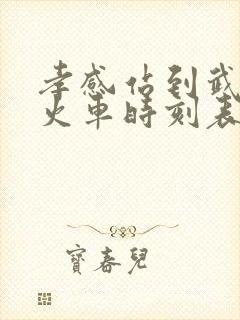 孝感佔到武
火車時刻表
寶春兒